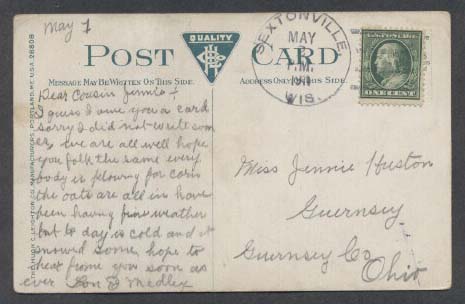 May 1
POST CARD
QUALITY
MESSAGE MAY BE WRITTEN ON THIS SIDE.
ADDRESS ONLY ON THIS SIDE.
SEXTONVILLE
MAY
P.M.
WIS.
ONE CENT
THE HUGH C. LEIGHTON CO. MANUFACTURERS, PORTLAND, ME. U.S.A. 26808
Dear Cousin Jennie
I guess I owe you a card
sorry I did not write soon
er, we are all well hope
you folk the same every
body is plowing for corn
the oats are all in have
been having fine weather
but to day is cold and it
snowed some, hope to
hear frome you soon as
ever
Miss Jennie Huston
Guernsey
Guernsey Co.
Ohio